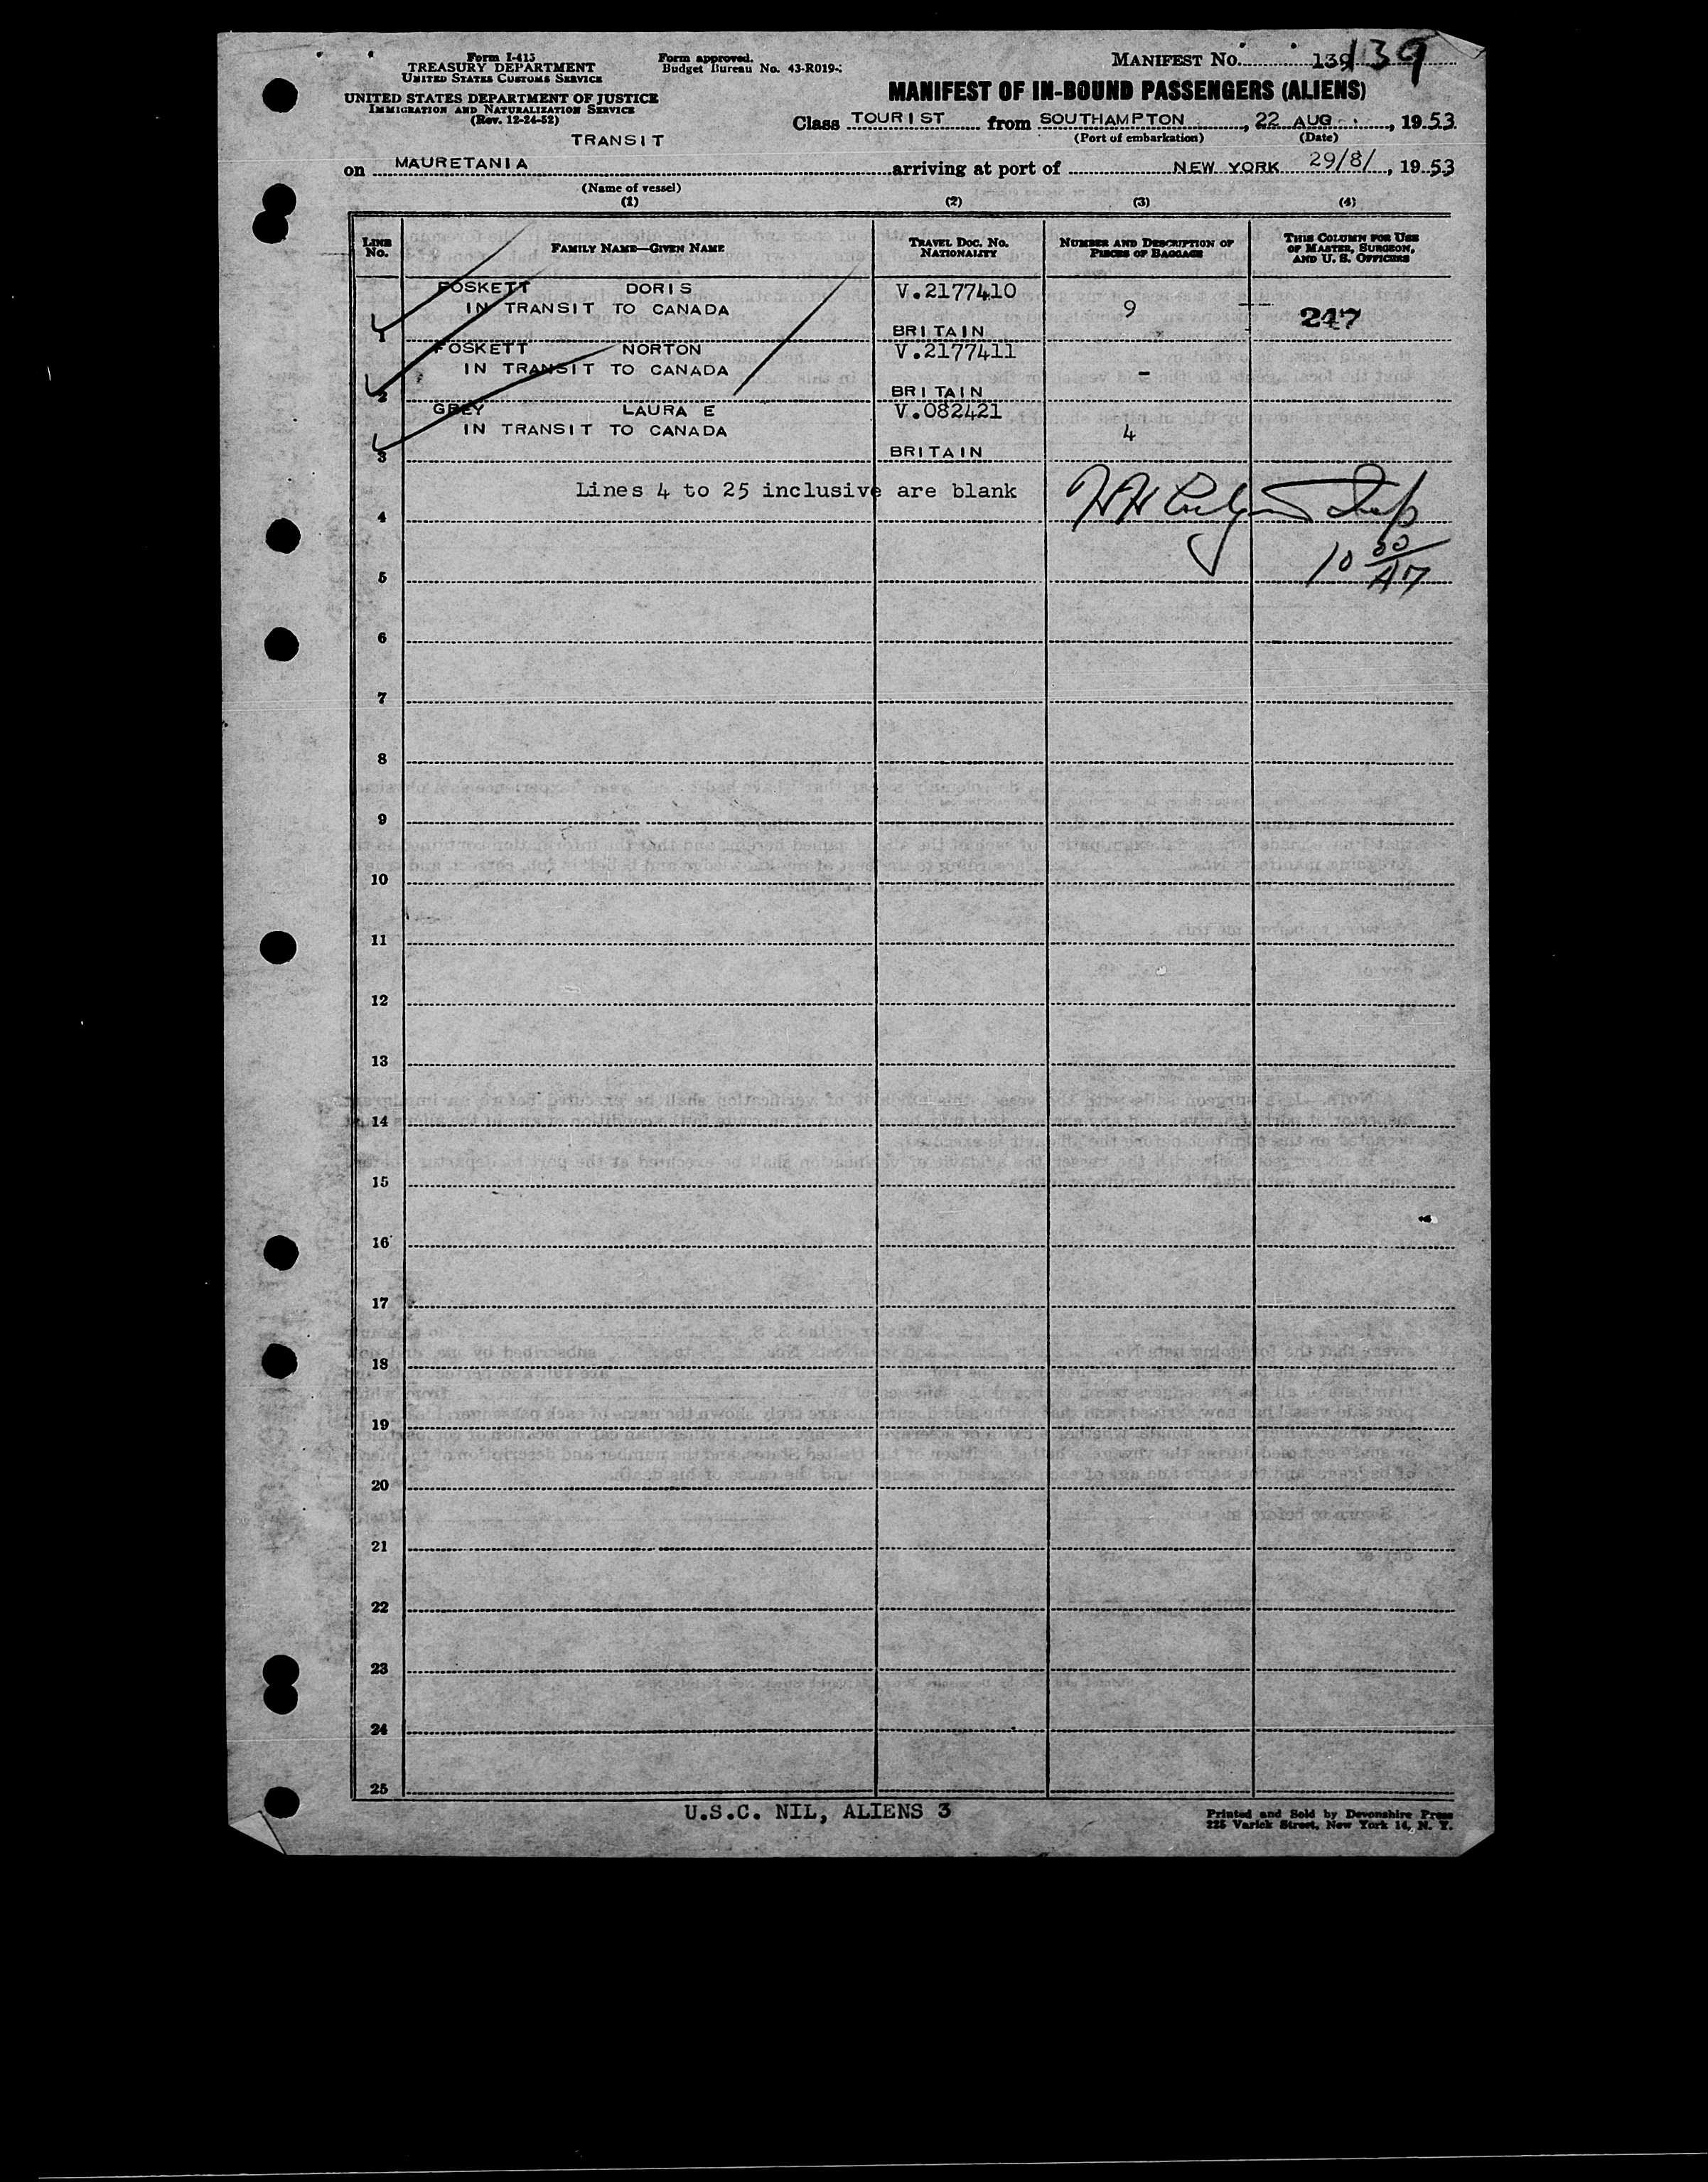 Form I-415
TREASURY DEPARTMENT
UNITED STATES CUSTOMS SERVICE
UNITED STATES DEPARTMENT OF JUSTICE
IMMIGRATION AND NATURALIZATION SERVICE
(Rev. 12-24-52)
Form approved.
Budget Bureau No. 43-R019-
MANIFEST No. 139 139
MANIFEST OF IN-BOUND PASSENGERS (ALIENS)
Class TOURIST from SOUTHAMPTON, 22 AUG, 1953
(Port of embarkation) (Date)
TRANSIT
on MAURETANIA arriving at port of NEW YORK 29/8/, 1953
(Name of vessel)
(1) (2) (3) (4)
LINE No. FAMILY NAME—GIVEN NAME TRAVEL DOC. NO. NATIONALITY NUMBER AND DESCRIPTION OF PIECES OF BAGGAGE THIS COLUMN FOR USE OF MASTER, SURGEON, AND U. S. OFFICERS
FOSKETT DORIS V.2177410
IN TRANSIT TO CANADA 9 247
1 BRITAIN
FOSKETT NORTON V.2177411
IN TRANSIT TO CANADA -
2 BRITAIN
GREY LAURA E V.082421
IN TRANSIT TO CANADA 4
3 BRITAIN
Lines 4 to 25 inclusive are blank
4
10 00
5
6
7
8
9
10
11
12
13
14
15
16
17
18
19
20
21
22
23
24
25
U.S.C. NIL, ALIENS 3
Printed and Sold by Devonshire Press
225 Varick Street, New York 14, N. Y.